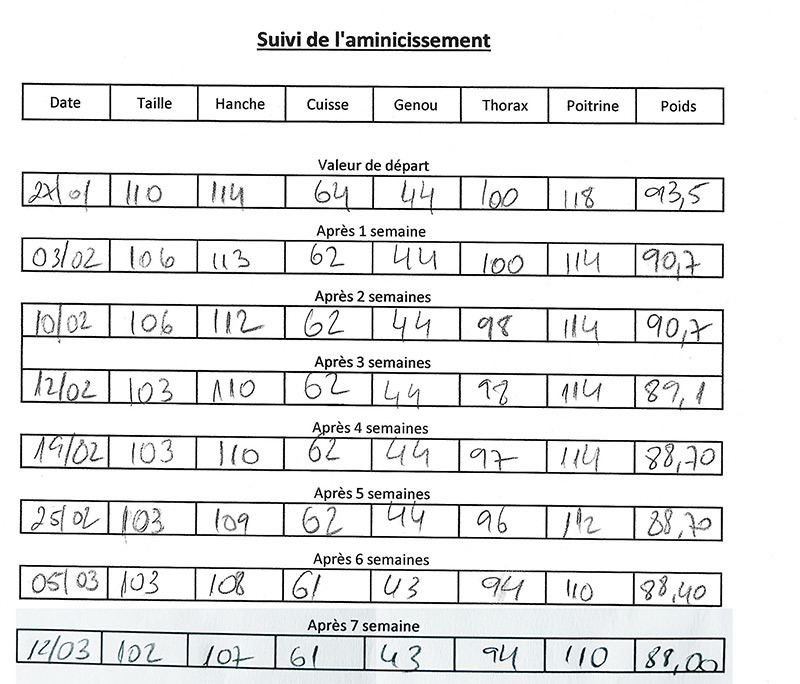 Suivi de l'aminicissement
Date Taille Hanche Cuisse Genou Thorax Poitrine Poids
Valeur de départ
27/01 110 114 64 44 100 118 93,5
Après 1 semaine
03/02 106 113 62 44 100 114 90,7
Après 2 semaines
10/02 106 112 62 44 98 114 90,7
Après 3 semaines
12/02 103 110 62 44 98 114 89,1
Après 4 semaines
19/02 103 110 62 44 97 114 88,70
Après 5 semaines
25/02 103 109 62 44 96 112 88,70
Après 6 semaines
05/03 103 108 61 43 94 110 88,40
Après 7 semaine
12/03 102 107 61 43 94 110 88,00